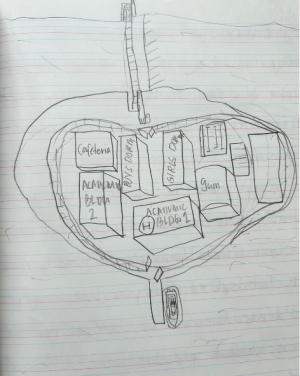 Cafeteria
BOYS DORM
GIRLS DORM
ACADEMIC
BLDG
2
gym
ACADEMIC
BLDG 1
H